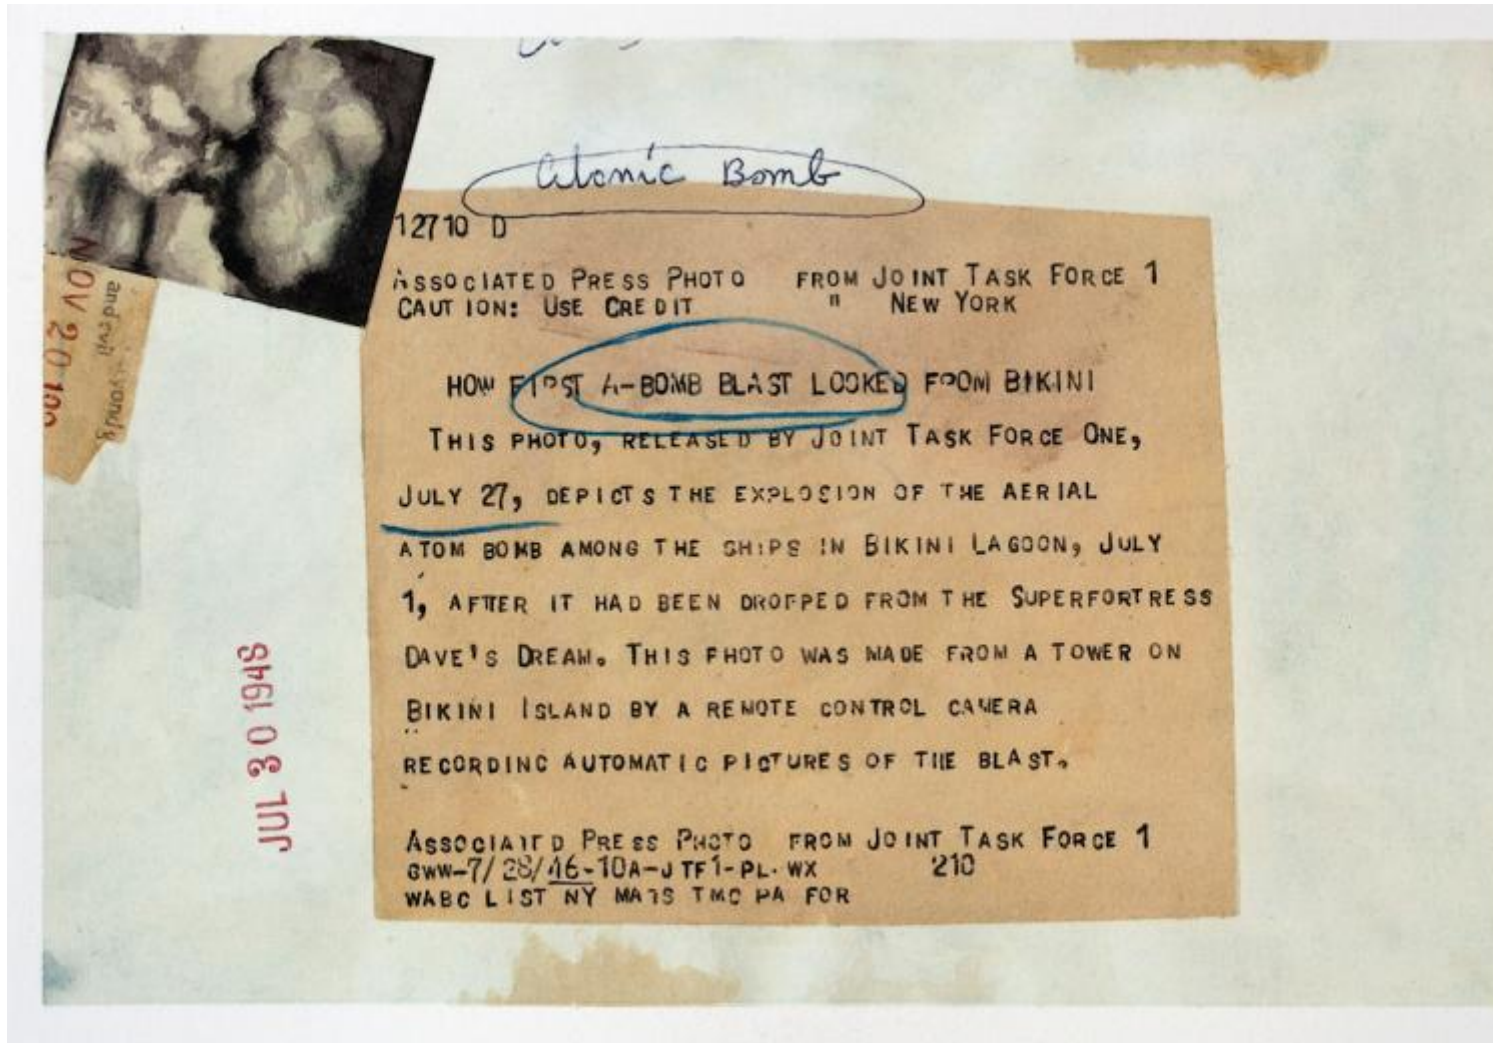 Atomic Bomb
12710 D
ASSOCIATED PRESS PHOTO FROM JOINT TASK FORCE 1
CAUTION: USE CREDIT " NEW YORK
HOW FIRST A-BOMB BLAST LOOKED FROM BIKINI
THIS PHOTO, RELEASED BY JOINT TASK FORCE ONE,
JULY 27, DEPICTS THE EXPLOSION OF THE AERIAL
ATOM BOMB AMONG THE SHIPS IN BIKINI LAGOON, JULY
1, AFTER IT HAD BEEN DROPPED FROM THE SUPERFORTRESS
DAVE'S DREAM. THIS PHOTO WAS MADE FROM A TOWER ON
BIKINI ISLAND BY A REMOTE CONTROL CAMERA
RECORDING AUTOMATIC PICTURES OF THE BLAST.
ASSOCIATED PRESS PHOTO FROM JOINT TASK FORCE 1
GWW-7/28/46-10A-JTF1-PL-WX 210
WABC LIST NY MATS TMC PA FOR
NOV 20
and
JUL 30 1946